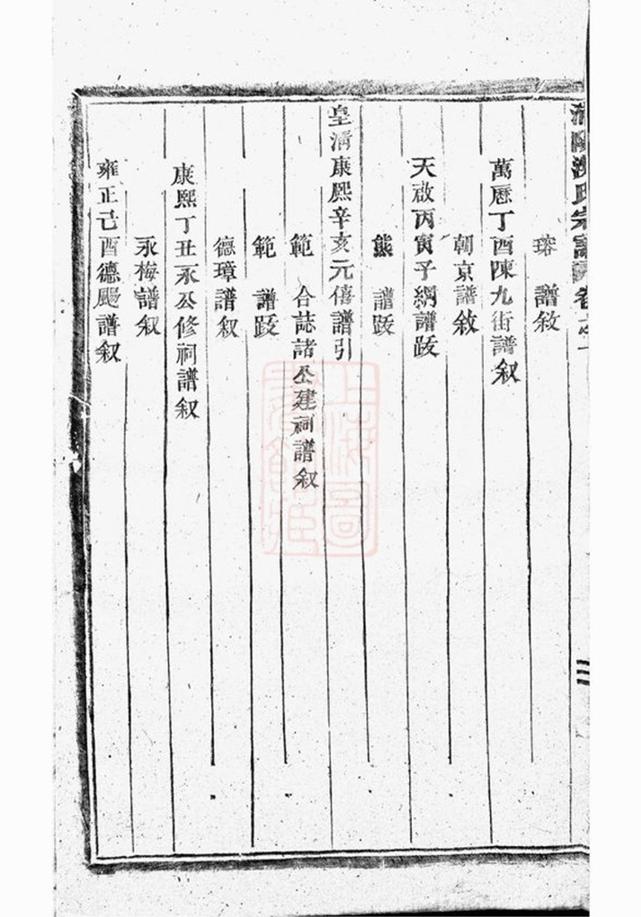 氏宗譜卷之一
三
瑢譜敘
萬曆丁酉陳九街譜叙
朝京譜敘
天啟丙寅子綱譜跋
熊譜跋
皇清康熙辛亥元僖譜引
範合誌諸公建祠譜叙
範譜跋
德璋譜叙
康熙丁丑永公修祠譜叙
永梅譜叙
雍正己酉德颺譜叙